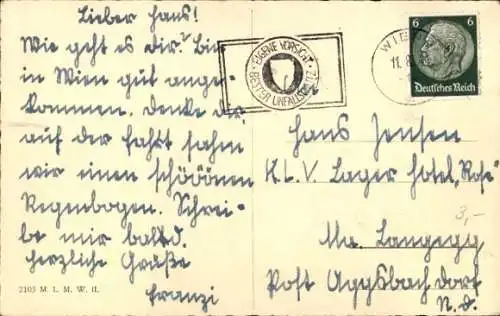 Lieber Hans!
Wie geht es dir? Bin
in Wien gut ange-
kommen. Denke dir,
auf der Fahrt sahn
wir einen schööönen
Regenbogen. Schrei-
be mir baldd.
Herzliche Grüße
Franzi
2105 M. L. M. W. II.
EIGENE VORSICHT
BESTER UNFALLSCHUTZ
WIEN
11. 8.
6 6
Deutsches Reich
Hans Jensen
K.L.V. Lager Hotel „Rose"
Ma. Langegg
Post Aggsbach Dorf
N.D.
3,-